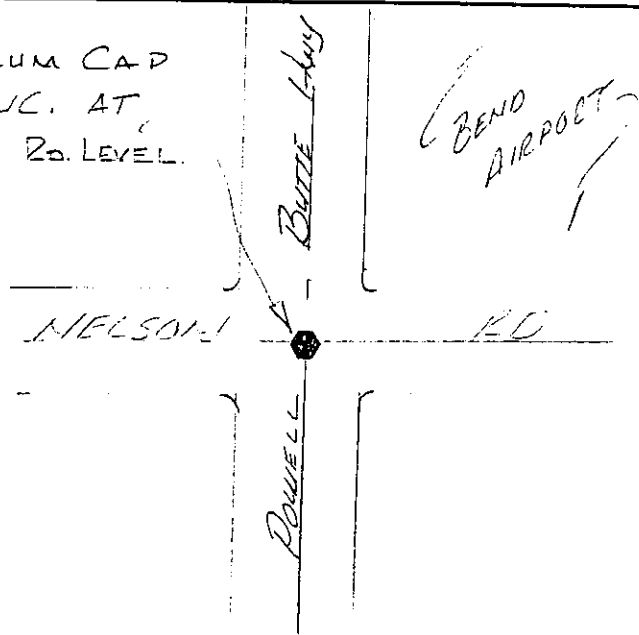 UM CAP
NC. AT
RD. LEVEL.
BUTTE HWY
(BEND
AIRPORT)
NELSON RD
POWELL